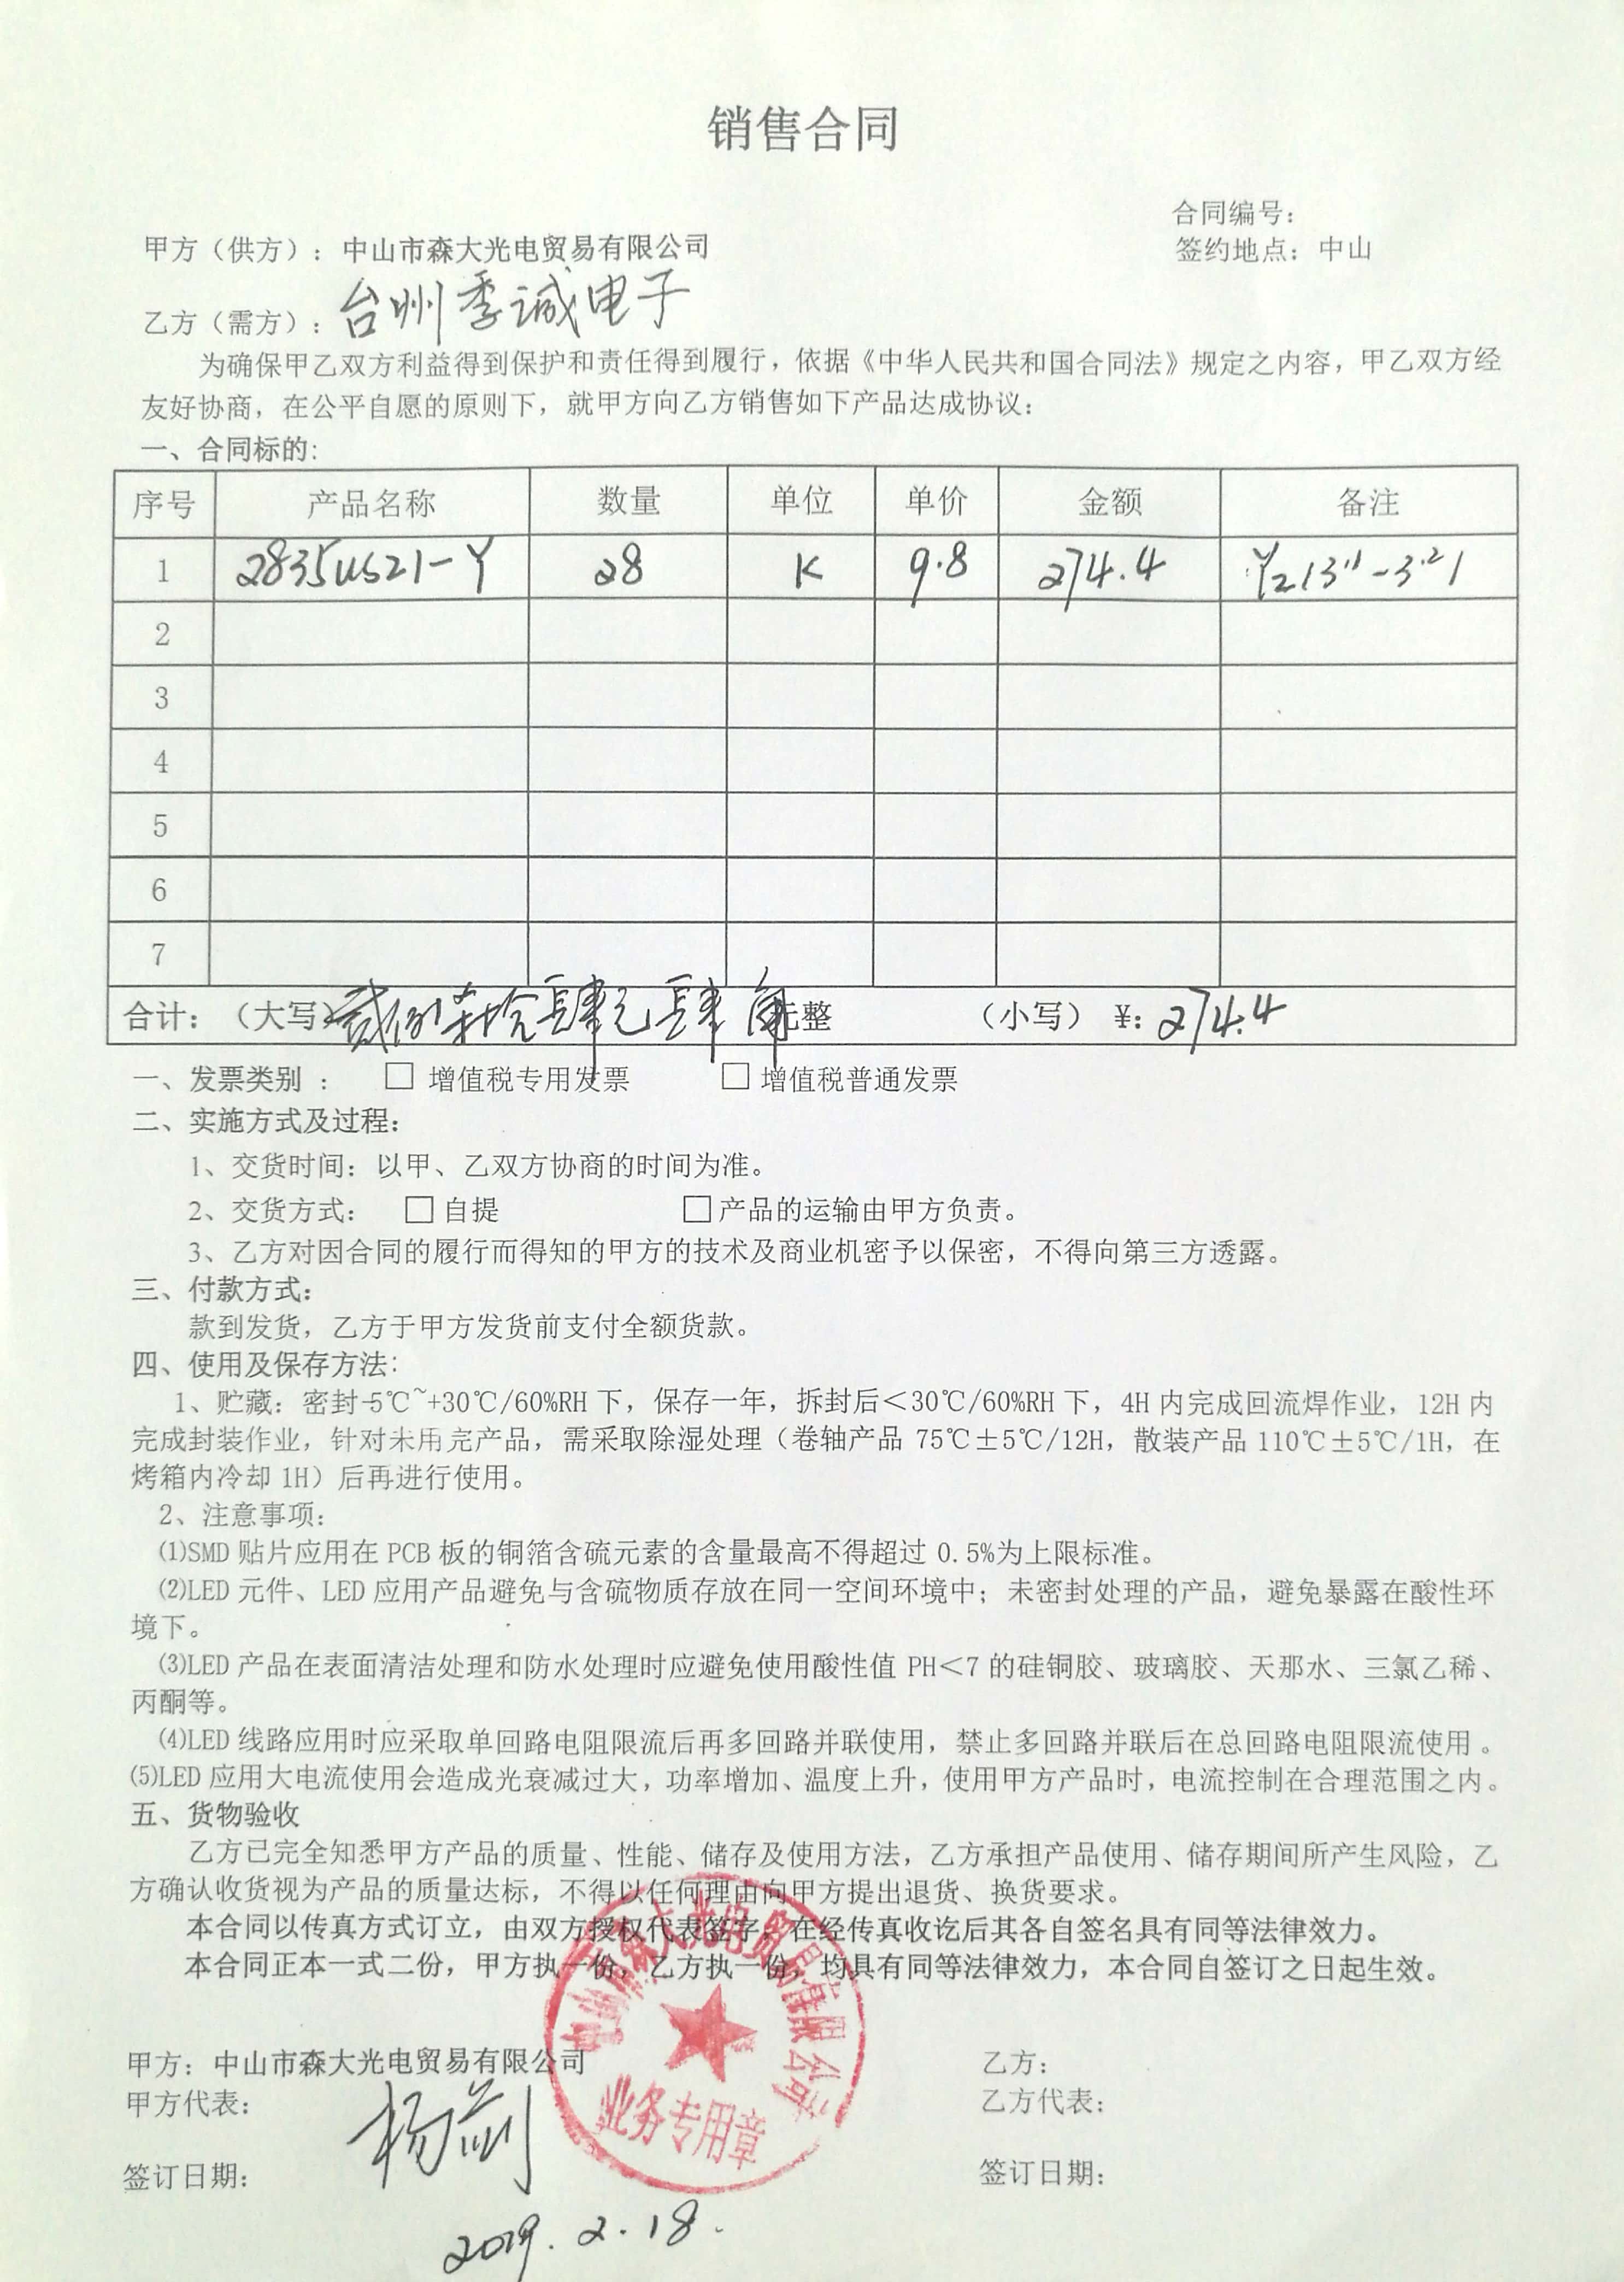 销售合同
合同编号:
甲方(供方):中山市森大光电贸易有限公司
签约地点:中山
乙方(需方):台州季诚电子
为确保甲乙双方利益得到保护和责任得到履行,依据《中华人民共和国合同法》规定之内容,甲乙双方经
友好协商,在公平自愿的原则下,就甲方向乙方销售如下产品达成协议:
一、合同标的:
序号 产品名称 数量 单位 单价 金额 备注
1 2835US21-Y 28 K 9.8 274.4
2
3
4
5
6
7
合计:(大写)贰佰柒拾肆元肆角元整 (小写)¥:274.4
一、发票类别 : □ 增值税专用发票 □ 增值税普通发票
二、实施方式及过程:
1、交货时间:以甲、乙双方协商的时间为准。
2、交货方式: □ 自提 □产品的运输由甲方负责。
3、乙方对因合同的履行而得知的甲方的技术及商业机密予以保密,不得向第三方透露。
三、付款方式:
款到发货,乙方于甲方发货前支付全额货款。
四、使用及保存方法:
1、贮藏:密封-5℃~+30℃/60%RH下,保存一年,拆封后<30℃/60%RH下,4H内完成回流焊作业,12H内
完成封装作业,针对未用完产品,需采取除湿处理(卷轴产品 75℃±5℃/12H,散装产品 110℃±5℃/1H,在
烤箱内冷却1H)后再进行使用。
2、注意事项:
⑴SMD 贴片应用在 PCB 板的铜箔含硫元素的含量最高不得超过 0.5%为上限标准。
⑵LED 元件、LED 应用产品避免与含硫物质存放在同一空间环境中;未密封处理的产品,避免暴露在酸性环
境下。
⑶LED 产品在表面清洁处理和防水处理时应避免使用酸性值 PH<7 的硅铜胶、玻璃胶、天那水、三氯乙稀、
丙酮等。
⑷LED 线路应用时应采取单回路电阻限流后再多回路并联使用,禁止多回路并联后在总回路电阻限流使用。
⑸LED 应用大电流使用会造成光衰减过大,功率增加、温度上升,使用甲方产品时,电流控制在合理范围之内。
五、货物验收
乙方已完全知悉甲方产品的质量、性能、储存及使用方法,乙方承担产品使用、储存期间所产生风险,乙
方确认收货视为产品的质量达标,不得以任何理由向甲方提出退货、换货要求。
本合同以传真方式订立,由双方授权代表签字,在经传真收讫后其各自签名具有同等法律效力。
本合同正本一式二份,甲方执一份,乙方执一份,均具有同等法律效力,本合同自签订之日起生效。
中山市森大光电贸易有限公司
业务专用章
甲方:中山市森大光电贸易有限公司 乙方:
甲方代表: 乙方代表:
签订日期: 签订日期:
2019.2.18.